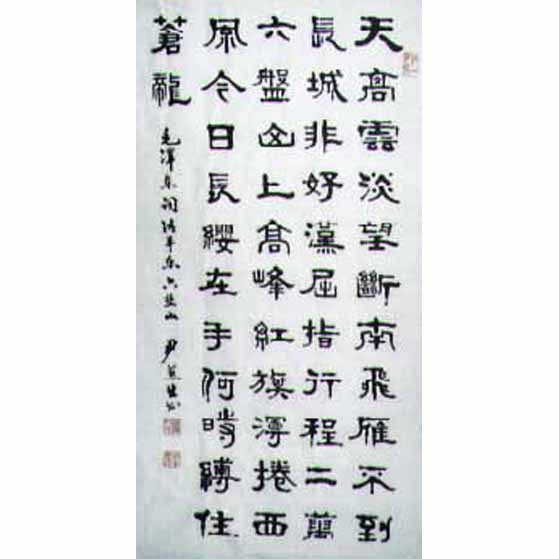 天高雲淡望斷南飛雁不到
長城非好漢屈指行程二萬
六盤山上高峰紅旗漫捲西
風今日長纓在手何時縛住
蒼龍
毛澤东詞清平乐六盘山 尹